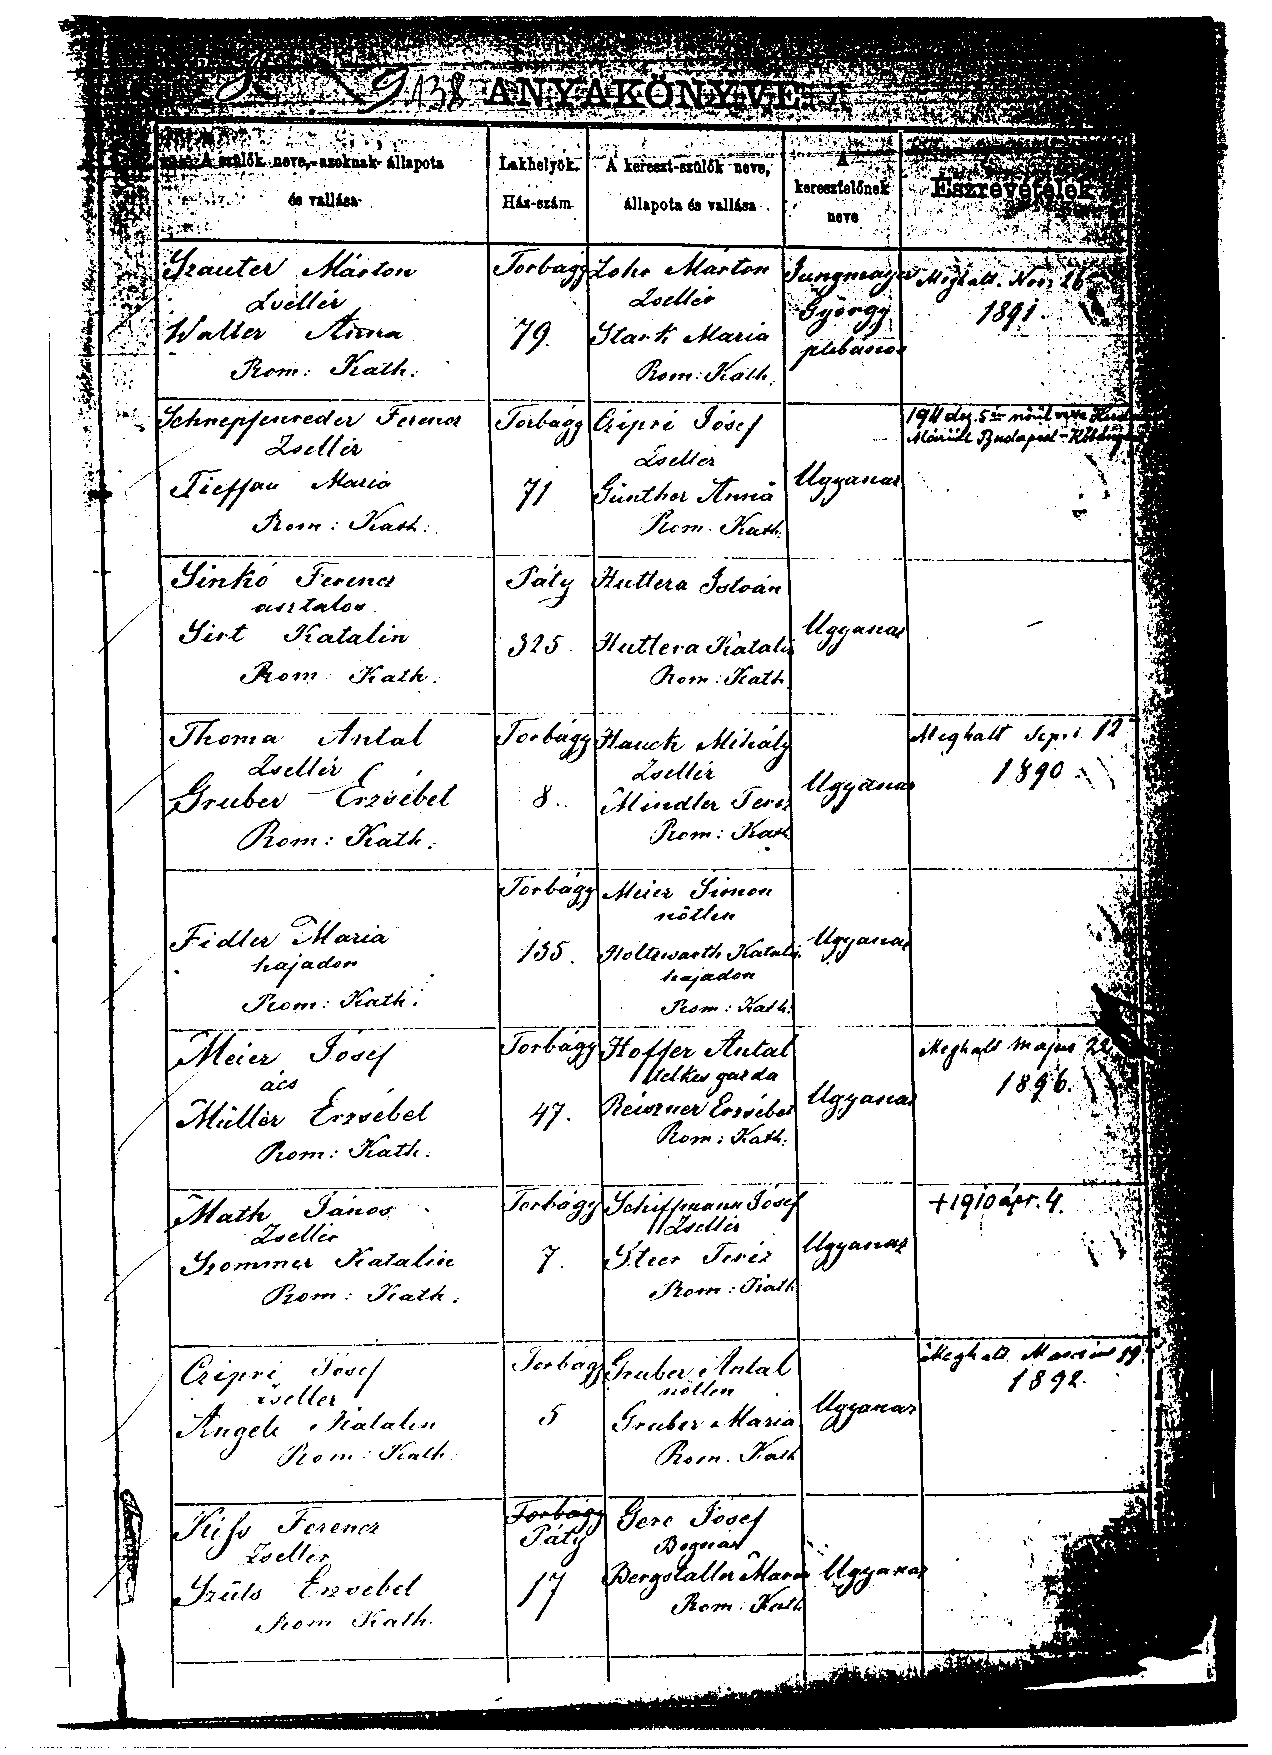 138 ANYAKÖNYVE
A szülők neve, azoknak állapota
és vallása
Lakhelyök.
Ház-szám
A kereszt-szülők neve,
állapota és vallása
A
keresztelőnek
neve
Észrevételek
Szauter Márton
Zsellér
Walter Anna
Rom: Kath:
Torbágy
79.
Lohr Márton
Zsellér
Stark Maria
Rom: Kath.
Jungmayer
György
plebános
Meghalt. Nov. 26
1891.
Schnepfenreder Ferencz
Zsellér
Maria
Rom: Kath:
Torbágy
71
Czipri Jósef
Zsellér
Günther Anna
Rom. Kath.
Ugyanaz
1911 dez. 5én nőül vette
Máriát Budapest-Kőbánya
Sinkó Ferencz
asztalos
Sirt Katalin
Rom: Kath.
Páty
325.
Huttera István
Huttera Katalin
Rom: Kath.
Ugyanaz
Thoma Antal
Zsellér
Gruber Erzsébet
Rom: Kath.
Torbágy
8.
Hauck Mihály
Zsellér
Mindler Teréz
Rom: Kath
Ugyanaz
Meghalt Sept. 12
1890
Fidler Maria
hajadon
Rom: Kath.
Torbágy
135.
Meier Simon
nőtlen
Holtzwarth Katalin
hajadon
Rom: Kath.
Ugyanaz
Meier Jósef
ács
Müller Erzsébet
Rom: Kath.
Torbágy
47.
Hoffer Antal
telkes gazda
Erzsébet
Rom: Kath.
Ugyanaz
Meghalt május 22
1896.
Math János
Zsellér
Sommer Katalin
Rom: Kath.
Torbágy
7.
Schiffmann Jósef
Zsellér
Steer Teréz
Rom: Kath
Ugyanaz
+1910 ápr. 4.
Czipri Jósef
Zsellér
Angeli Katalin
Rom: Kath.
Torbágy
5
Gruber Antal
nőtlen
Gruber Maria
Rom. Kath
Ugyanaz
Meghalt Marcius 19
1892.
Kiss Ferencz
Zsellér
Erzsébet
Rom Kath.
Torbágy
Páty
17
Gere Jósef
Bognár
Bergstaller Maria
Rom: Kath
Ugyanaz